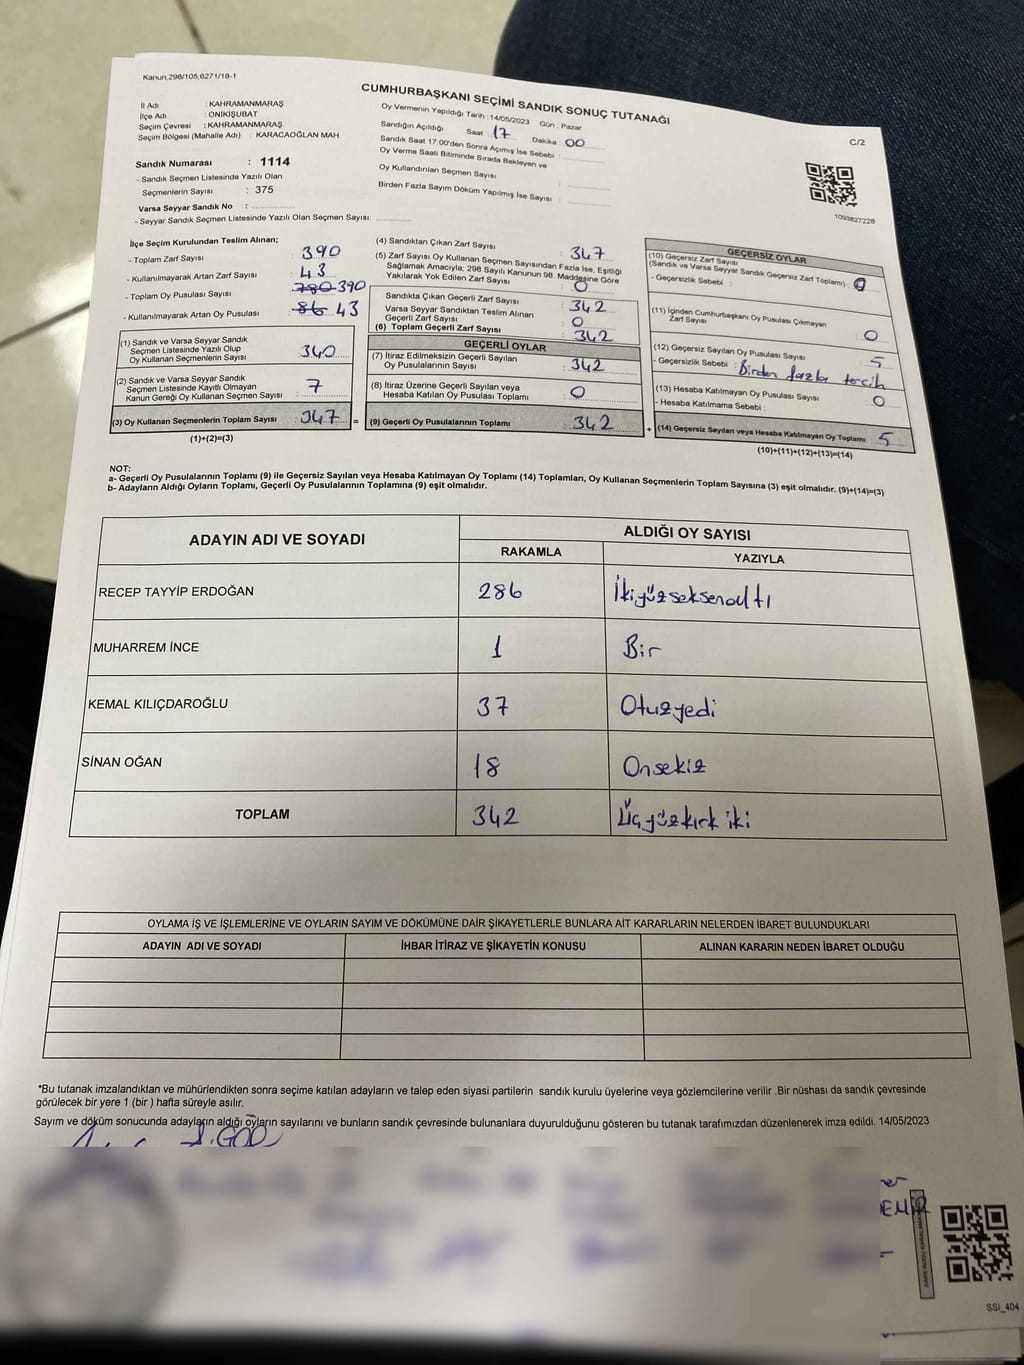 Kanun:298/105,6271/18-1
CUMHURBAŞKANI SEÇİMİ SANDIK SONUÇ TUTANAĞI
İl Adı : KAHRAMANMARAŞ
İlçe Adı : ONİKİŞUBAT
Seçim Çevresi : KAHRAMANMARAŞ
Seçim Bölgesi (Mahalle Adı) : KARACAOĞLAN MAH.
Sandık Numarası : 1114
- Sandık Seçmen Listesinde Yazılı Olan
Seçmenlerin Sayısı : 375
Varsa Seyyar Sandık No :
- Seyyar Sandık Seçmen Listesinde Yazılı Olan Seçmen Sayısı:
Oy Vermenin Yapıldığı Tarih : 14/05/2023 Gün : Pazar
Sandığın Açıldığı Saat : 17 Dakika : 00
Sandık Saat 17.00'den Sonra Açmış İse Sebebi :
Oy Verme Saati Bitiminde Sırada Bekleyen ve
Oy Kullandırılan Seçmen Sayısı
Birden Fazla Sayım Döküm Yapılmış İse Sayısı :
C/2
1093827228
İlçe Seçim Kurulundan Teslim Alınan;
- Toplam Zarf Sayısı : 390
- Kullanılmayarak Artan Zarf Sayısı : 43
- Toplam Oy Pusulası Sayısı : 780 390
- Kullanılmayarak Artan Oy Pusulası : 86 43
(1) Sandık ve Varsa Seyyar Sandık
Seçmen Listesinde Yazılı Olup
Oy Kullanan Seçmenlerin Sayısı : 340
(2) Sandık ve Varsa Seyyar Sandık
Seçmen Listesinde Kayıtlı Olmayan
Kanun Gereği Oy Kullanan Seçmen Sayısı : 7
(3) Oy Kullanan Seçmenlerin Toplam Sayısı : 347 =
(1)+(2)=(3)
(4) Sandıktan Çıkan Zarf Sayısı : 347
(5) Zarf Sayısı Oy Kullanan Seçmen Sayısından Fazla İse, Eşitliği
Sağlamak Amacıyla; 298 Sayılı Kanunun 98. Maddesine Göre
Yakılarak Yok Edilen Zarf Sayısı : 0
Sandıkta Çıkan Geçerli Zarf Sayısı : 342
Varsa Seyyar Sandıktan Teslim Alınan
Geçerli Zarf Sayısı : 0
(6) Toplam Geçerli Zarf Sayısı : 342
GEÇERLİ OYLAR
(7) İtiraz Edilmeksizin Geçerli Sayılan
Oy Pusulasının Sayısı : 342
(8) İtiraz Üzerine Geçerli Sayılan veya
Hesaba Katılan Oy Pusulası Toplamı : 0
(9) Geçerli Oy Pusulalarının Toplamı : 342 +
GEÇERSİZ OYLAR
(10) Geçersiz Zarf Sayısı
(Sandık ve Varsa Seyyar Sandık Geçersiz Zarf Toplamı) : 0
- Geçersizlik Sebebi :
(11) İçinden Cumhurbaşkanı Oy Pusulası Çıkmayan
Zarf Sayısı : 0
(12) Geçersiz Sayılan Oy Pusulası Sayısı : 5
- Geçersizlik Sebebi : Birden fazla tercih
(13) Hesaba Katılmayan Oy Pusulası Sayısı : 0
- Hesaba Katılmama Sebebi :
(14) Geçersiz Sayılan veya Hesaba Katılmayan Oy Toplamı : 5
(10)+(11)+(12)+(13)=(14)
NOT:
a- Geçerli Oy Pusulalarının Toplamı (9) ile Geçersiz Sayılan veya Hesaba Katılmayan Oy Toplamı (14) Toplamları, Oy Kullanan Seçmenlerin Toplam Sayısına (3) eşit olmalıdır. (9)+(14)=(3)
b- Adayların Aldığı Oyların Toplamı, Geçerli Oy Pusulalarının Toplamına (9) eşit olmalıdır.
ADAYIN ADI VE SOYADI ALDIĞI OY SAYISI
RAKAMLA YAZIYLA
RECEP TAYYİP ERDOĞAN 286 İkiyüzseksenaltı
MUHARREM İNCE 1 Bir
KEMAL KILIÇDAROĞLU 37 Otuzyedi
SİNAN OĞAN 18 Onsekiz
TOPLAM 342 Üçyüzkırk iki
OYLAMA İŞ VE İŞLEMLERİNE VE OYLARIN SAYIM VE DÖKÜMÜNE DAİR ŞİKAYETLERLE BUNLARA AİT KARARLARIN NELERDEN İBARET BULUNDUKLARI
ADAYIN ADI VE SOYADI İHBAR İTİRAZ VE ŞİKAYETİN KONUSU ALINAN KARARIN NEDEN İBARET OLDUĞU
*Bu tutanak imzalandıktan ve mühürlendikten sonra seçime katılan adayların ve talep eden siyasi partilerin sandık kurulu üyelerine veya gözlemcilerine verilir .Bir nüshası da sandık çevresinde
görülecek bir yere 1 (bir ) hafta süreyle asılır.
Sayım ve döküm sonucunda adayların aldığı oyların sayılarını ve bunların sandık çevresinde bulunanlara duyurulduğunu gösteren bu tutanak tarafımızdan düzenlenerek imza edildi. 14/05/2023
SSI_404